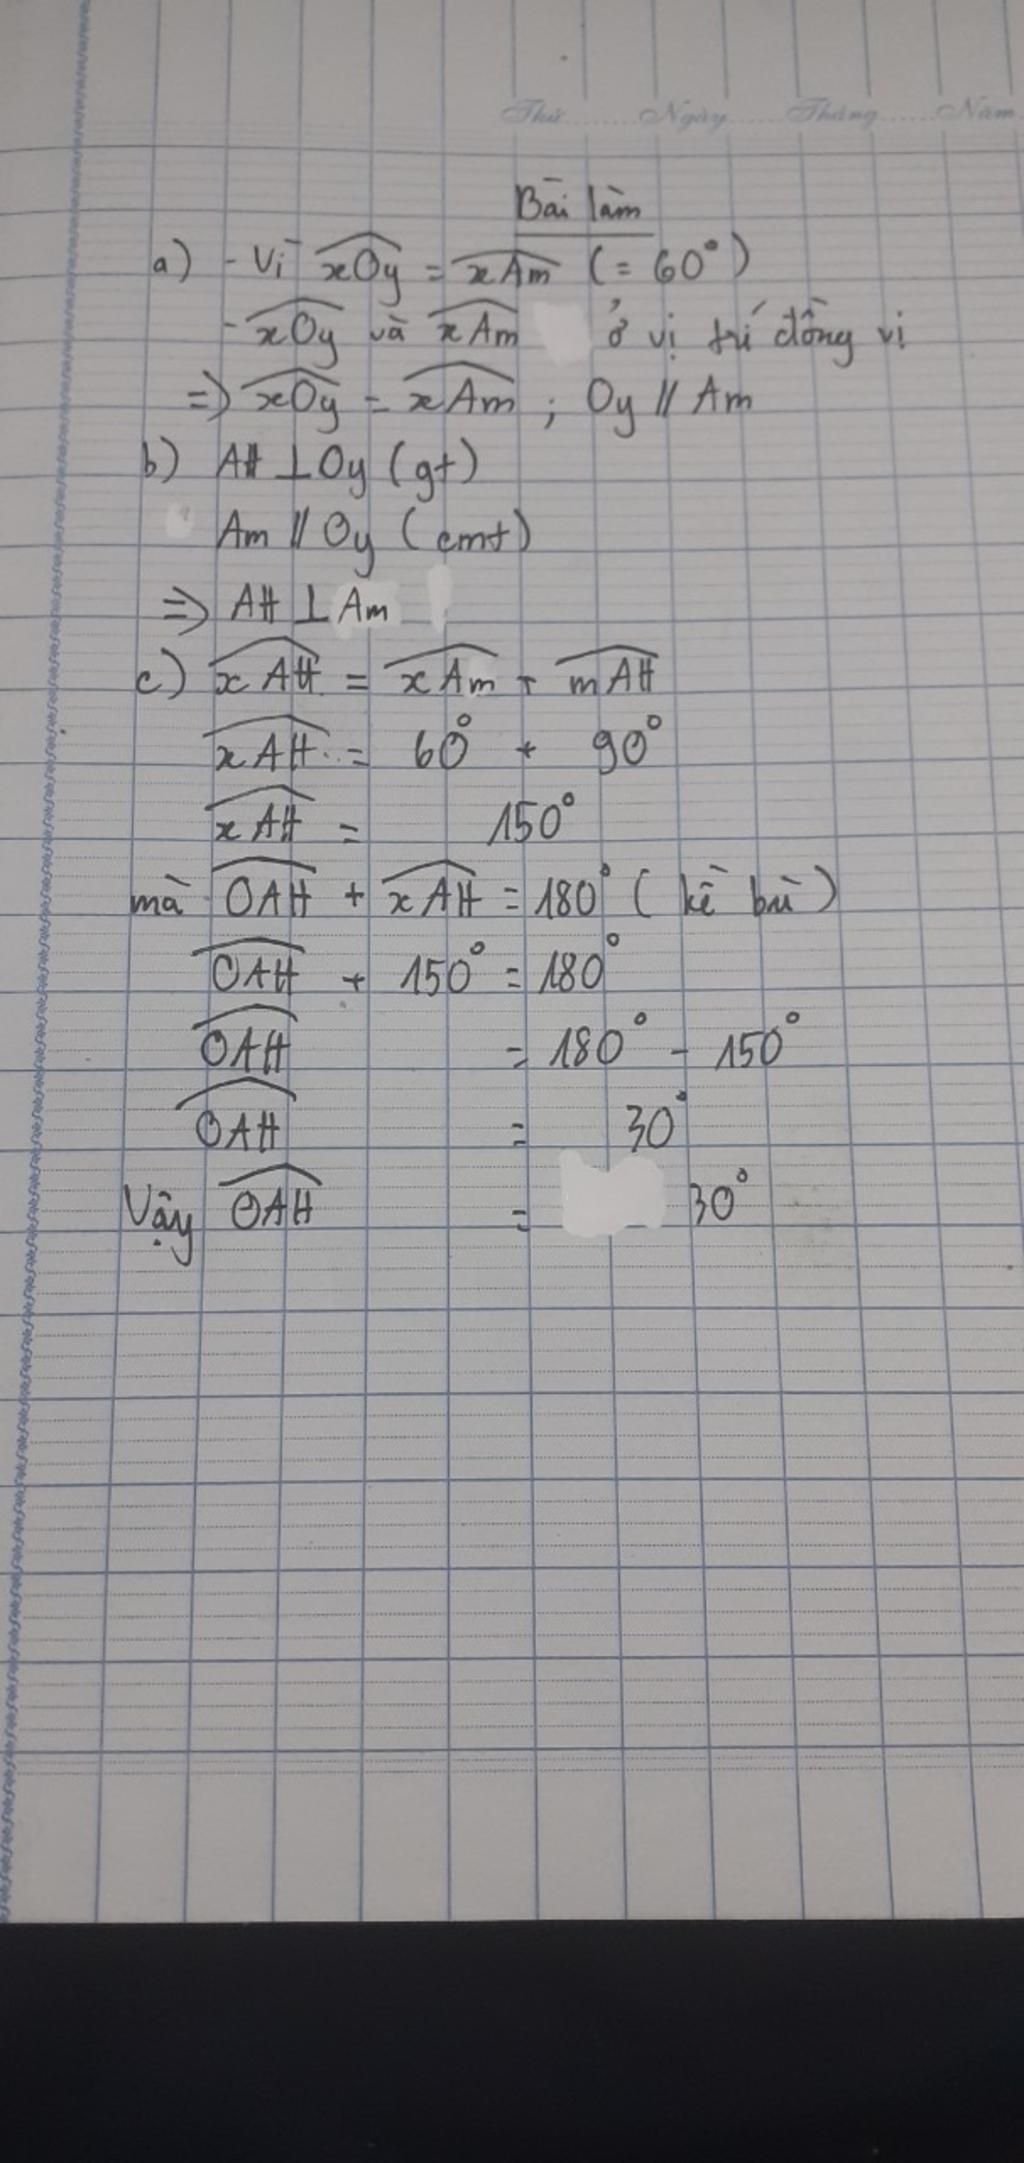 Thứ Ngày Tháng Năm
Bài làm
a) - Vì xOy = xAm (= 60°)
- xOy và xAm ở vị trí đồng vị
=> xOy = xAm ; Oy // Am
b) AH ⊥ Oy (gt)
Am // Oy (cmt)
=> AH ⊥ Am
c) xAH = xAm + mAH
xAH = 60° + 90°
xAH = 150°
mà OAH + xAH = 180° ( kề bù )
OAH + 150° = 180°
OAH = 180° - 150°
OAH = 30°
Vậy OAH = 30°